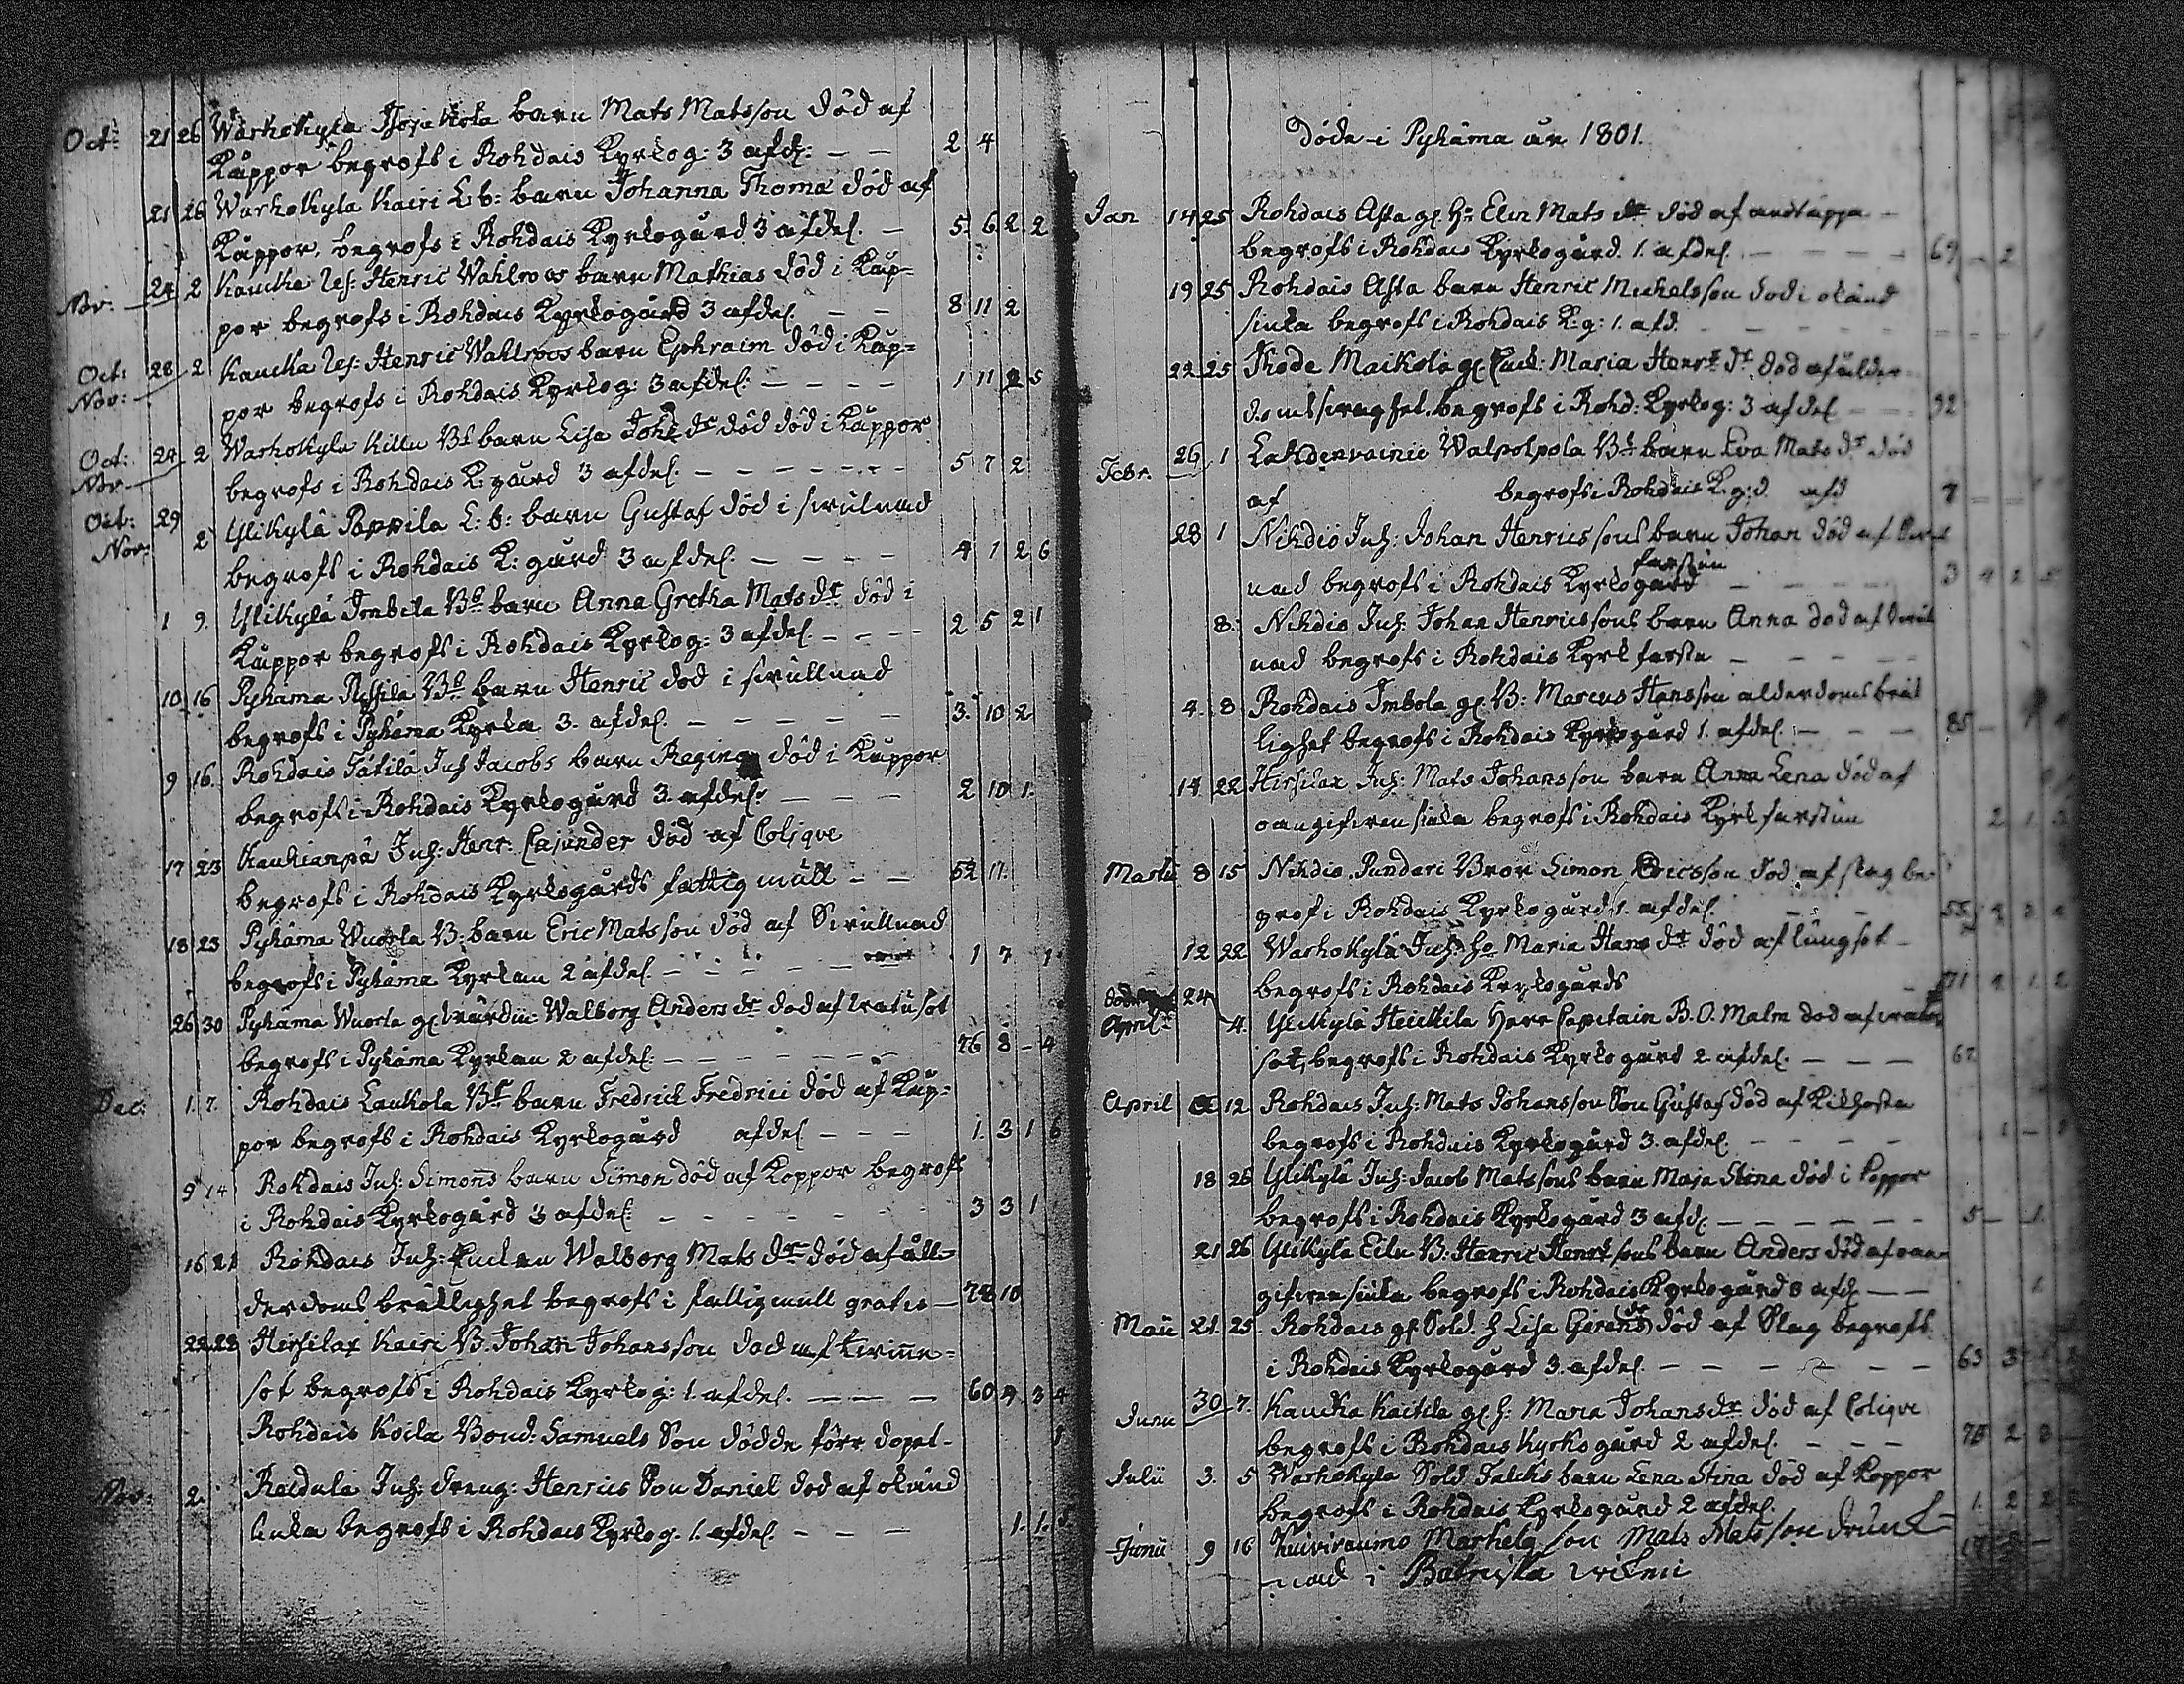 Oct: 21 26 Warhokyla barn Mats Matsson död af
Kåppor begrofs i Rohdais Kyrkog: 3 afd: — — 2 4
21 26 Warhokyla Kairi L: b: barn Johanna Thomæ död af
Kåppor, begrofs i Rohdais Kyrkogård 3 afdel. — 5 6 2 2
Nov: 24 2 Kaucka Henric Wahlroos barn Mathias död i Kåp=
por begrofs i Rohdais Kyrkogård 3 afdel. — — 8 11 2
Oct: Nov: 28 2 Kaucka Henric Wahlroos barn Ephraim död i Kåp=
por begrofs i Rohdais Kyrkog: 3 afdel: — — — — 1 11 2 5
Oct: Nov 24 2 Warhokyla Killu Bd barn Lisa Joh: dr död död i Kåppor
begrofs i Rohdais K: gård 3 afdel. — — — — — 5 7 2
Oct: 29 Nov: 2 Ylikylä Poppila L: b: barn Gustaf död i
begrofs i Rohdais K: gård 3 afdel. — — — — 4 1 2 6
1 9. Ylikylä Immila Bd barn Anna Gretha Mats dr död i
Kåppor begrofs i Rohdais Kyrkog: 3 afdel. — — — — 2 5 2 1
10 16 Pyhäma Bd barn Henric död i
begrofs i Pyhäma Kyrka 3. afdel. — — — — — 3. 10 2
9 16. Rohdais Tätilä Inh Jacobs barn Regina död i Kåppor
begrofs i Rohdais Kyrkogård 3. afdel: — — — 2 10 1.
17 23 Kaukianpä Inh: Henr: Cajander död af Colique
begrofs i Rohdais Kyrkogårds fattig mull — — 52 11.
18 23 Pyhäma Wuorla B: barn Eric Matsson död af
begrofs i Pyhäma Kyrkan 2 afdel — — — — 1 7 1
26 30 Pyhäma Wuorla gl Walborg Anders dr död af
begrofs i Pyhäma Kyrkan 2 afdel: — — — — — — 76 8 — 4
Dec: 1. 7. Rohdais Laukola Bd barn Fredrick Fredrici död af Kåp=
por begrofs i Rohdais Kyrkogård afdel — — — 1. 3 1 6
9 14 Rohdais Inh: Simons barn Simon död af Koppor begrofs
i Rohdais Kyrkogård 3 afdel: — — — — — — — 3 3 1
16 21 Rohdais Inh: Enckan Walborg Mats dr död af ål=
derdoms bräklighet begrofs i fattigmull gratis — 78 10
22 28 Hirsilax Kairi B. Johan Johansson död af
sot begrofs i Rohdais Kyrkog: 1. afdel. — — — 60 9 3 4
Rohdais Koila Bond: Samuels Son dödde före dopet —
Nov: 2. Raidula Inh: dreng: Henrics Son Daniel död af okänd
siuka begrofs i Rohdais Kyrkog. 1. afdel. — — — 1. 1. 5
Döde i Pyhäma år 1801.
Jan 14 25 Rohdais Asta gl: h: Elin Mats dr död af andtäppa —
begrofs i Rohdais Kyrkogård. 1. afdel. — — — — — 69 — 2
19 25 Rohdais Asta barn Henric Michelsson död i okänd
siuka begrofs i Rohdais K: g: 1. afd. — — — — — — 1
22 25 Thode Maikola gl: Enck: Maria Henrs dr död af ålder=
doms svaghet. begrofs i Rohd: Kyrkog: 3 afdel — — 92
Febr. 26 1 Lahdenvainio Walpolpola Bd barn Eva Mats dr död
af begrofs i Rohdais K. g:d. afd 7 — — 1
28 1 Nihdiö Inh: Johan Henricssons barn Johan död af
nad begrofs i Rohdais Kyrkogård farstun — — — 3 4 2 5
8. Nihdiö Inh: Johan Henricssons barn Anna död af
nad begrofs i Rohdais Kyrk farstu — — — — —
4. 8 Rohdais Imbola gl. B: Marcus Hansson alderdoms bräk
lighet begrofs i Rohdais Kyrkogård 1. afdel. — — — 85 —
14 22 Hirsilax Inh: Mats Johansson barn Anna Lena död af
oangifven siuka begrofs i Rohdais Kyrk farstun 2 1 3
Martii 8 15 Nihdiö Pundari Bror Simon Ericsson död af slag be=
grof i Rohdais Kyrkogård 1. afdel.
12 22 Warhokylä Inh: ho Maria Hans dr död af lungsot —
begrofs i Rohdais Kyrkogårds — 71 9 1 2
April: 24 4. Ylikylä Heickilä Herr Capitain B. O. Malm död af
sot, begrofs i Rohdais Kyrko gård 2 afdel. — — — 67
April 12 Rohdais Inh: Mats Johansson Son Gustaf död af Kikhosta
begrofs i Rohdais Kyrkogård 3. afdel. — — — —
18 26 Ylikylä Inh: Jacob Matssons barn Maja Stina död i Koppor
begrofs i Rohdais Kyrkogård 3 afd. — — — — — — 5 — 1.
21 26 Ylikylä Eilu B: Henric Henrs sons barn Anders död af oan=
gifven siuka begrofs i Rohdais Kyrkogård 3 afd — — 1
Maii 21. 25 Rohdais gl: Sold. h Lisa Gerens dr död af Slag begrofs
i Rohdais Kyrkogård 3. afdel. — — — — — — — 63 3
Junii 30 7. Kaucka Kaitila gl h: Maria Johansdr död af Colique
begrofs i Rohdais Kyrkogård 2 afdel. — — — 75 2 3
Julii 3. 5 Warhokyla Sold Falcks barn Lena Stina död af Koppor
begrofs i Rohdais Kyrkogård 2 afdel. 1. 2 2
Junii 9 16 Kuivraumo Markela son Mats Matsson drunk=
nad i viken